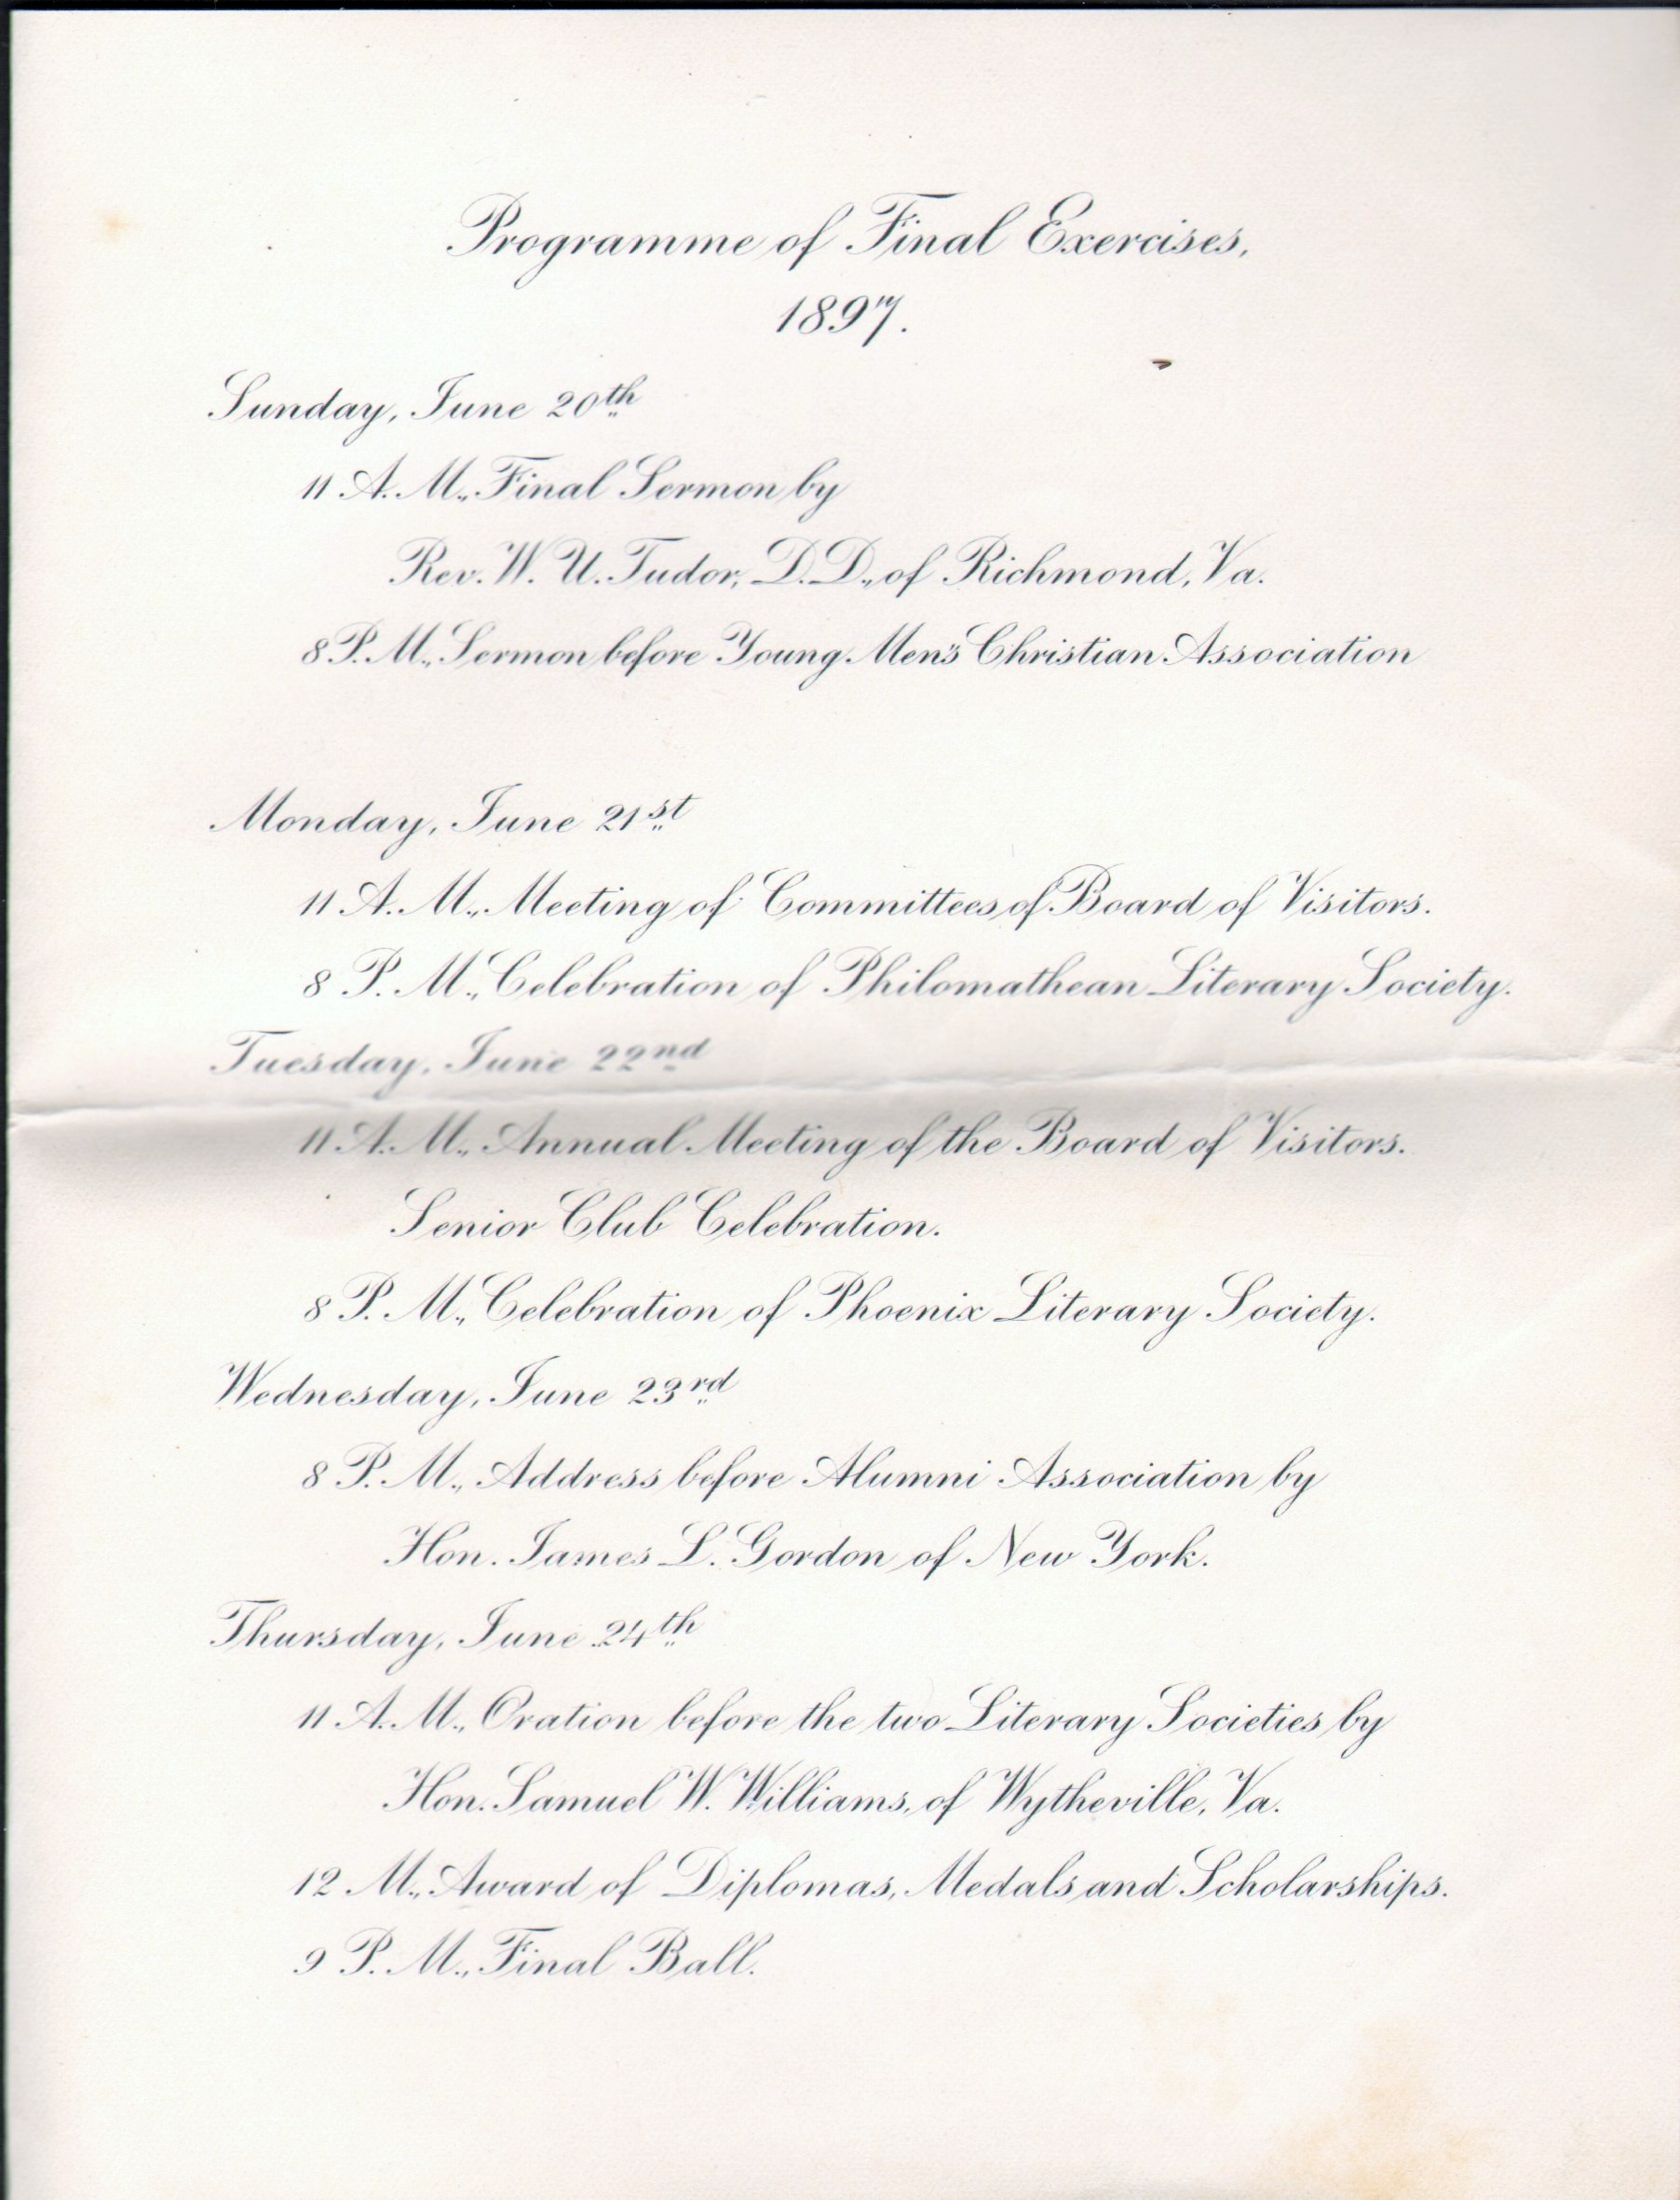 Programme of Final Exercises,
1897.
Sunday, June 20th
11 A. M., Final Sermon by
Rev. W. U. Tudor, D. D., of Richmond, Va.
8 P. M., Sermon before Young Men's Christian Association
Monday, June 21st
11 A. M., Meeting of Committees of Board of Visitors.
8 P. M., Celebration of Philomathean Literary Society.
Tuesday, June 22nd
11 A. M., Annual Meeting of the Board of Visitors.
Senior Club Celebration.
8 P. M., Celebration of Phoenix Literary Society.
Wednesday, June 23rd
8 P. M., Address before Alumni Association by
Hon. James L. Gordon of New York.
Thursday, June 24th
11 A. M., Oration before the two Literary Societies by
Hon. Samuel W. Williams, of Wytheville, Va.
12 M., Award of Diplomas, Medals and Scholarships.
9 P. M., Final Ball.